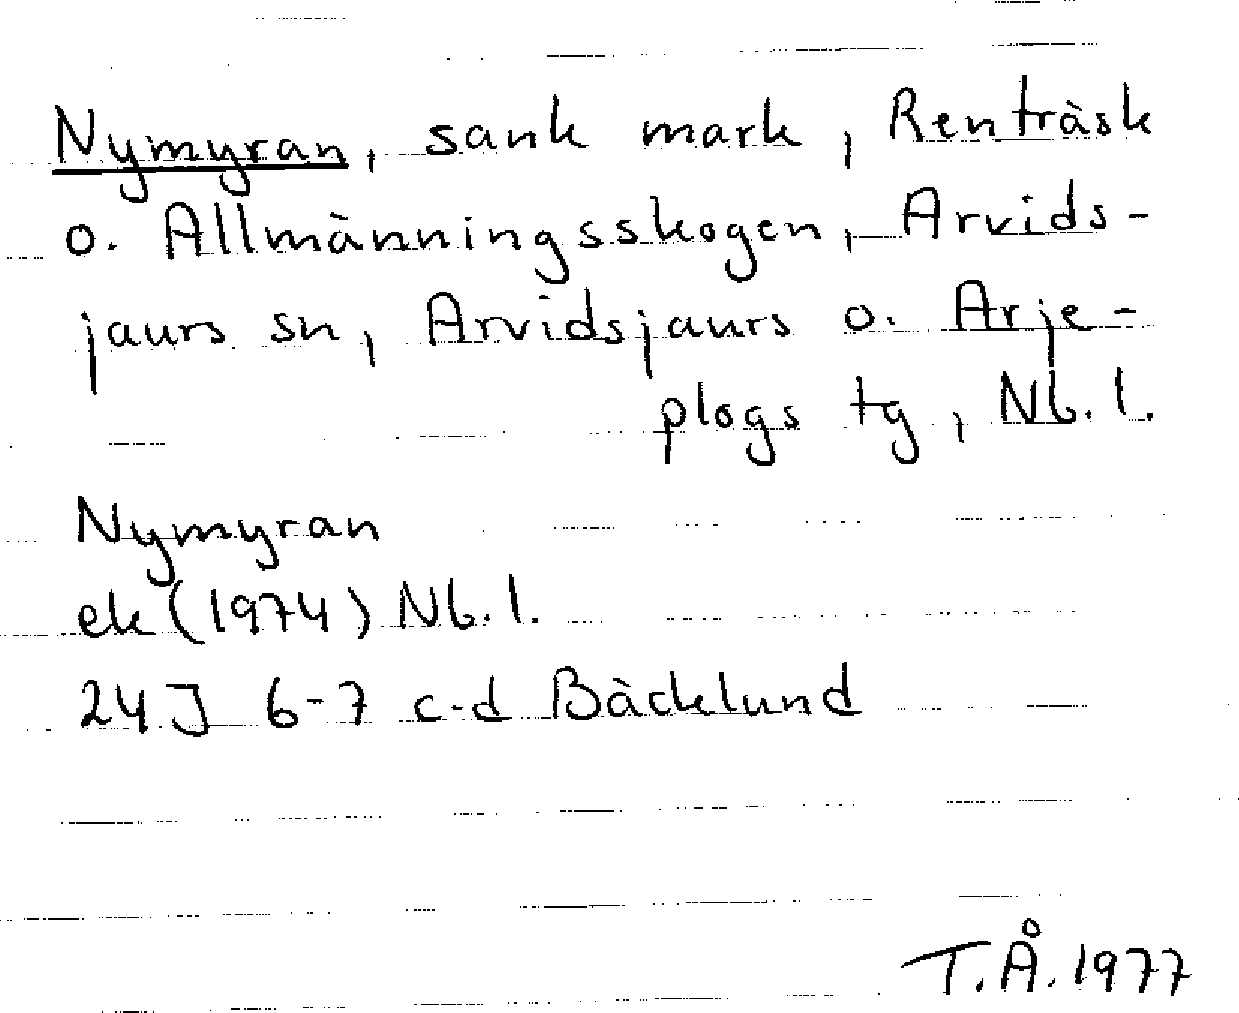 Nymyran, sank mark, Renträsk
o. Allmänningsskogen, Arvids-
jaurs sn, Arvidsjaurs o. Arje-
plogs tg, Nb. l.
Nymyran
ek (1974) Nb. l.
24J 6-7 c-d Bäcklund
T.Å. 1977